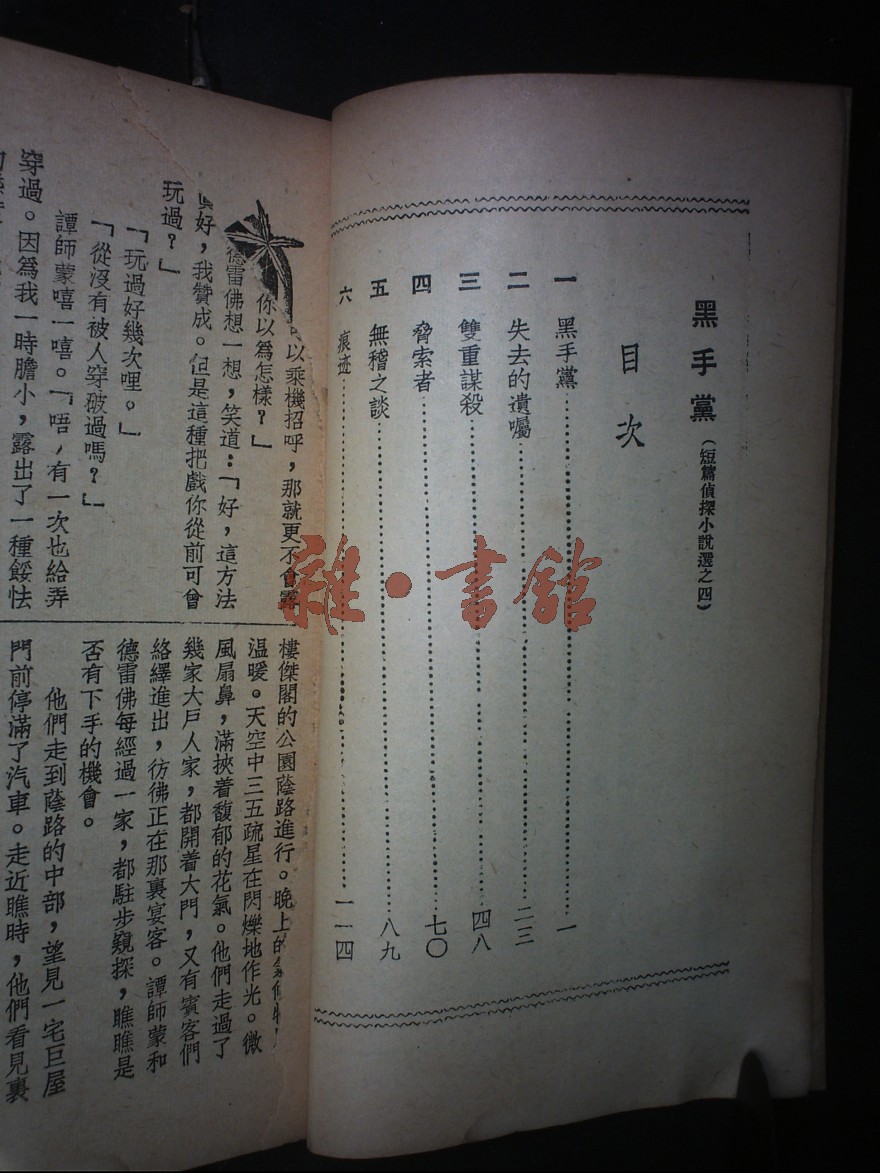 黑手黨（短篇偵探小說選之四）
目次
一 黑手黨……一
二 失去的遺囑……二三
三 雙重謀殺……四八
四 脅索者……七〇
五 無稽之談……八九
六 痕迹……一一四
以乘機招呼，那就更不會露
你以爲怎樣？」
德雷佛想一想，笑道：「好，這方法
好，我贊成。但是這種把戲你從前可曾
玩過？」
「玩過好幾次哩。」
「從沒有被人穿破過嗎？」
譚師蒙嘻一嘻。「唔，有一次也給弄
穿過。因爲我一時膽小，露出了一種餒怯
樓傑閣的公園蔭路進行。晚上的
温暖。天空中三五疏星在閃爍地作光。微
風扇鼻，滿挾着馥郁的花氣。他們走過了
幾家大戶人家，都開着大門，又有賓客們
絡繹進出，彷彿正在那裏宴客。譚師蒙和
德雷佛每經過一家，都駐步窺探，瞧瞧是
否有下手的機會。
他們走到蔭路的中部，望見一宅巨屋
門前停滿了汽車。走近瞧時，他們看見裏
雜·書館